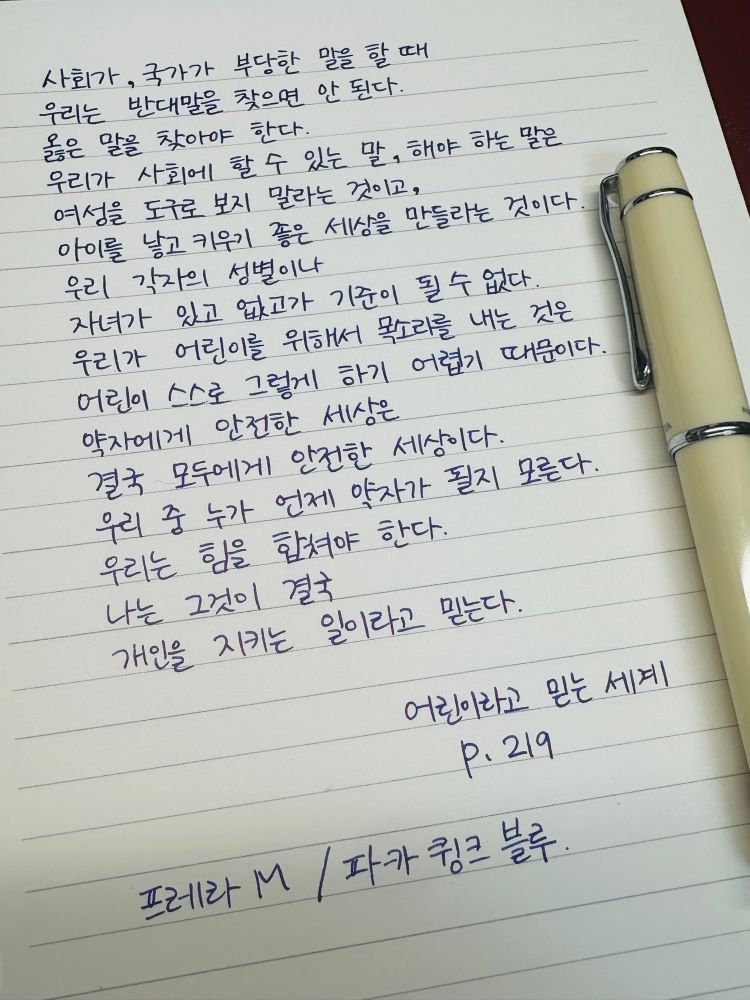 사회가, 국가가 부당한 말을 할 때
우리는 반대말을 찾으면 안 된다.
옳은 말을 찾아야 한다.
우리가 사회에 할 수 있는 말, 해야 하는 말은
여성을 도구로 보지 말라는 것이고,
아이를 낳고 키우기 좋은 세상을 만들라는 것이다.
우리 각자의 성별이나
자녀가 있고 없고가 기준이 될 수 없다.
우리가 어린이를 위해서 목소리를 내는 것은
어린이 스스로 그렇게 하기 어렵기 때문이다.
약자에게 안전한 세상은
결국 모두에게 안전한 세상이다.
우리 중 누가 언제 약자가 될지 모른다.
우리는 힘을 합쳐야 한다.
나는 그것이 결국
개인을 지키는 일이라고 믿는다.
어린이라고 믿는 세계
p. 219
프레라 M / 파카 큉크 블루.